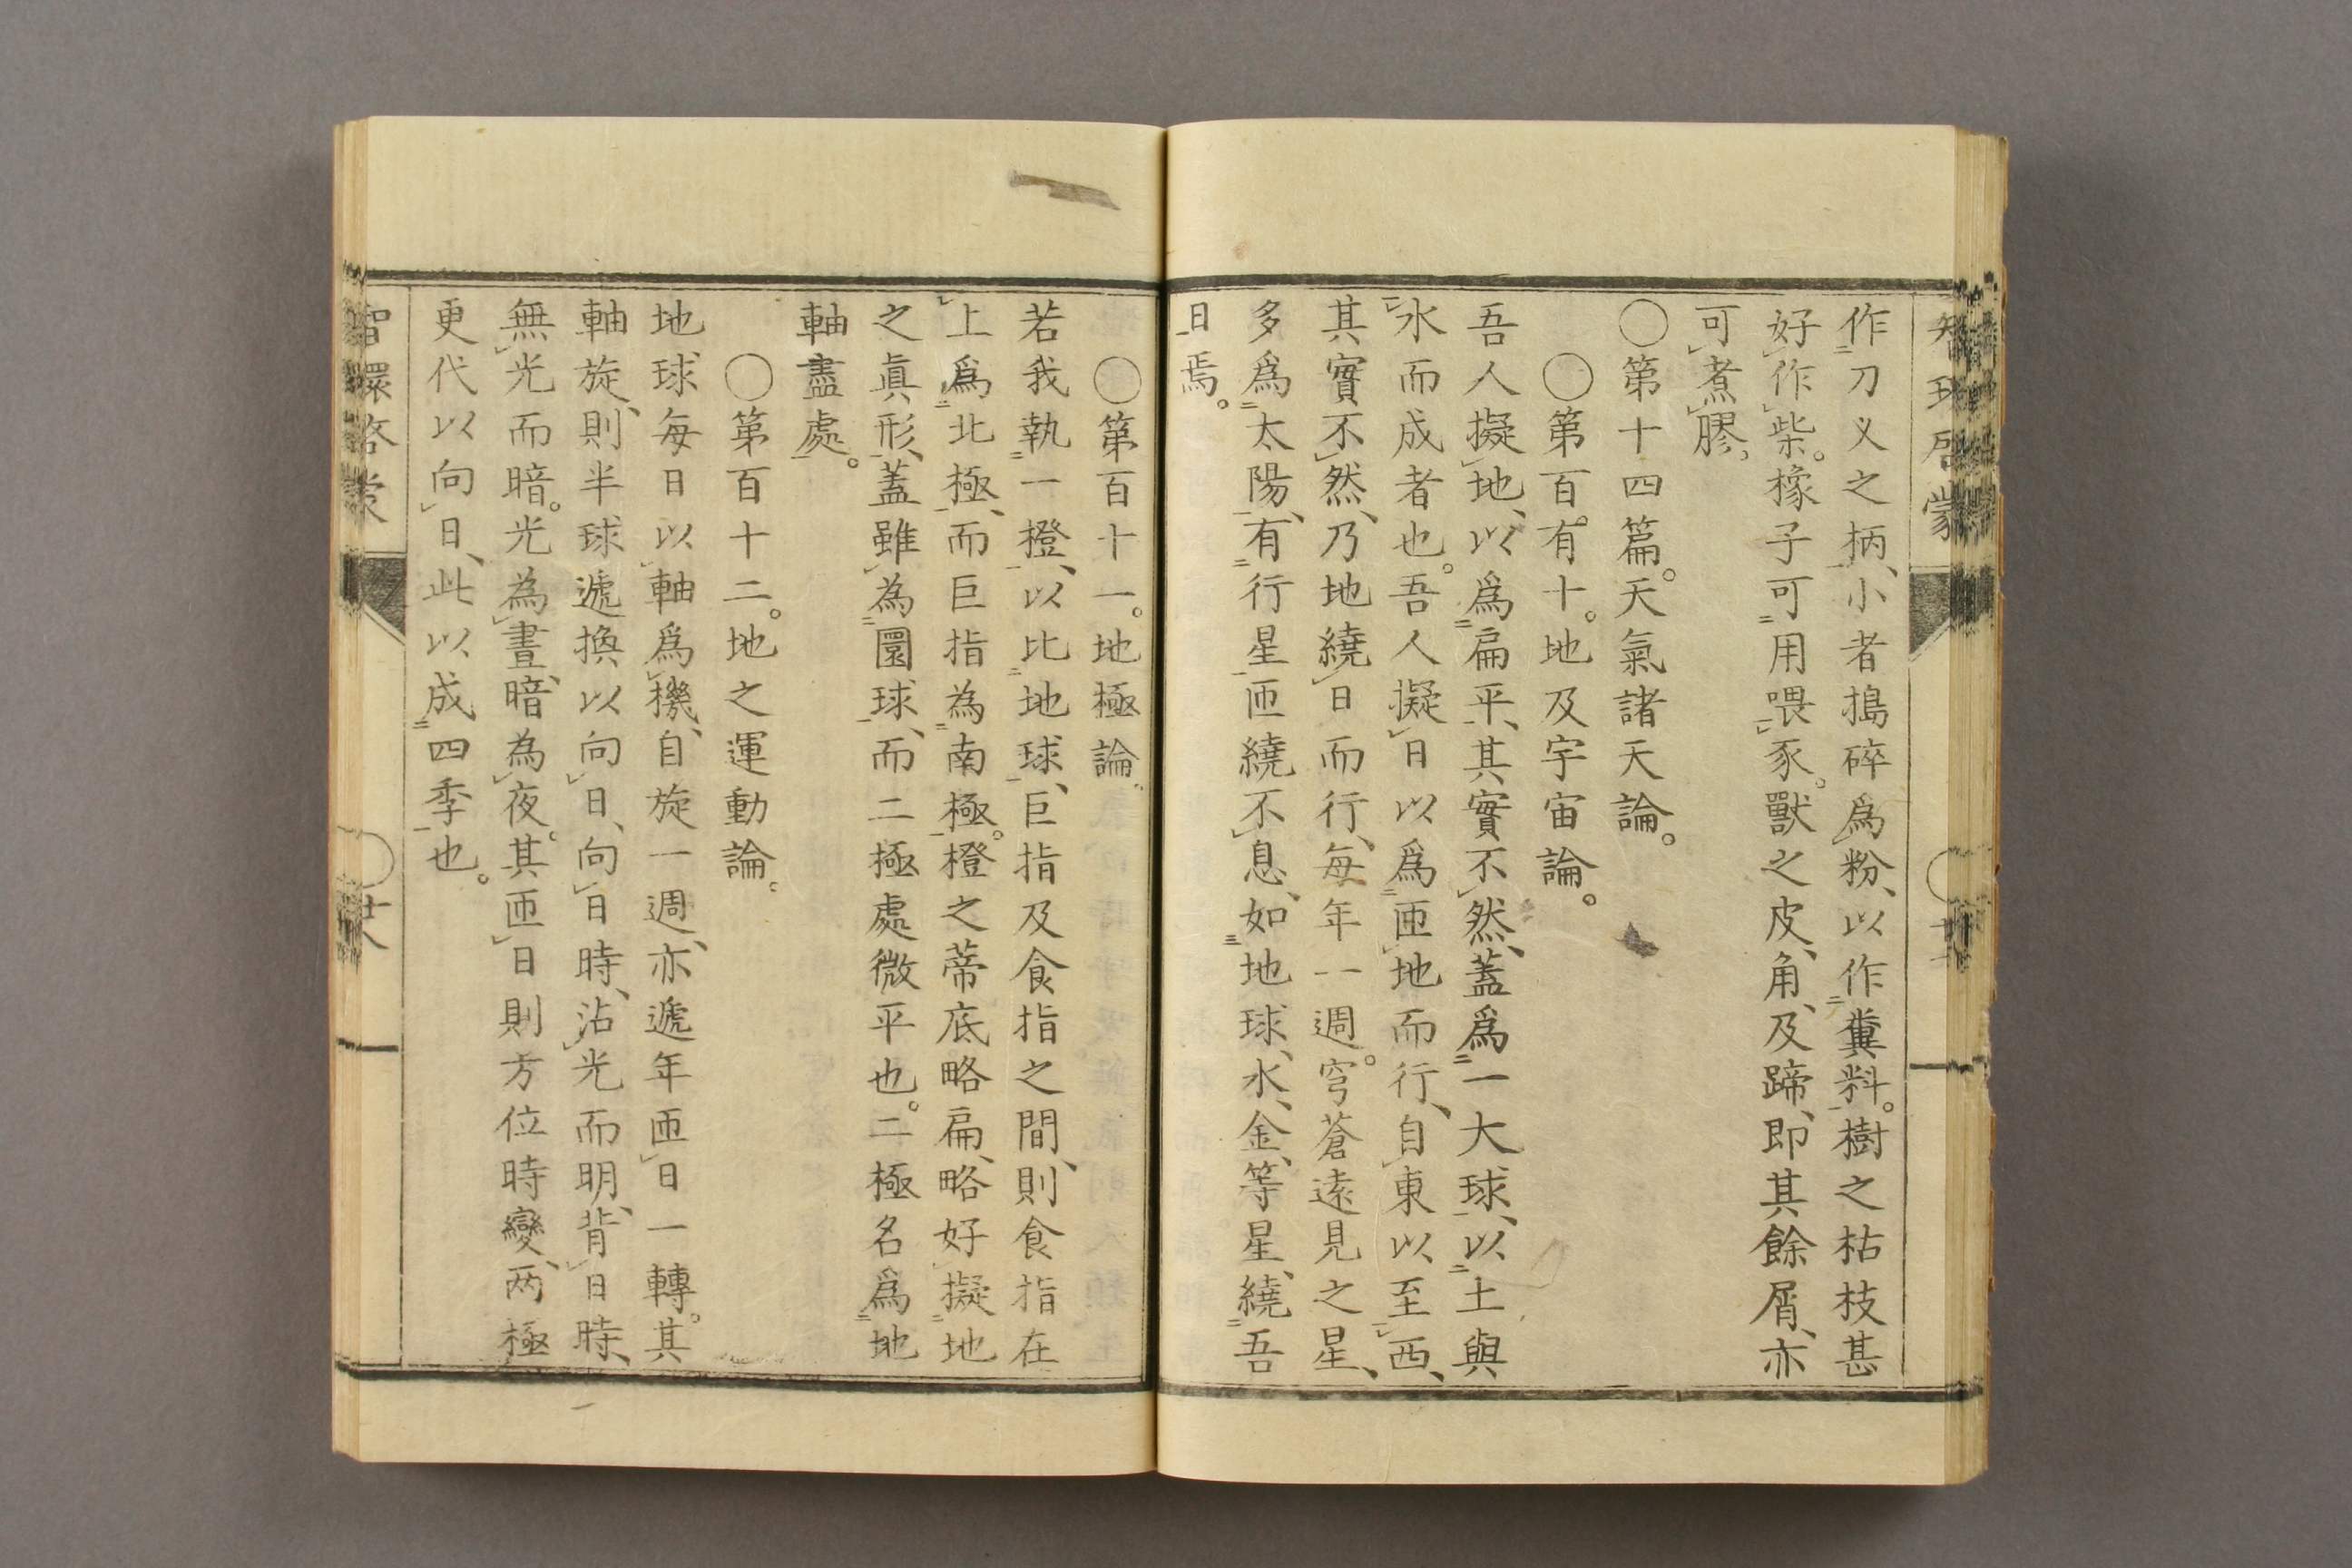 作刀义之柄、小者搗碎爲粉、以作糞料。樹之枯枝甚
好作柴。橡子可用喂豕。獸之皮、角、及蹄、即其餘屑、亦
可煮膠。
〇第十四篇。天氣諸天論。
〇第百有十。地及宇宙論。
吾人擬地、以爲扁平、其實不然、蓋爲一大球、以土與
水而成者也。吾人擬日以爲匝地而行、自東以至西、
其實不然、乃地繞日而行、每年一週。穹蒼遠見之星、
多爲太陽、有行星匝繞不息、如地球、水、金、等星、繞吾
日焉。
〇第百十一。地極論。
若我執一橙、以比地球、巨指及食指之間、則食指在
上爲北極、而巨指為南極。橙之蒂底略扁、略好擬地
之眞形、蓋雖為圜球、而二極處微平也。二極名爲地
軸盡處。
〇第百十二。地之運動論。
地球每日以軸爲機、自旋一週、亦遞年匝日一轉。其
軸旋、則半球遞換以向日、向日時、沾光而明、背日時、
無光而暗。光為晝、暗為夜。其匝日則方位時變、两極
更代以向日、此以成四季也。
智環啓蒙
〇廿八